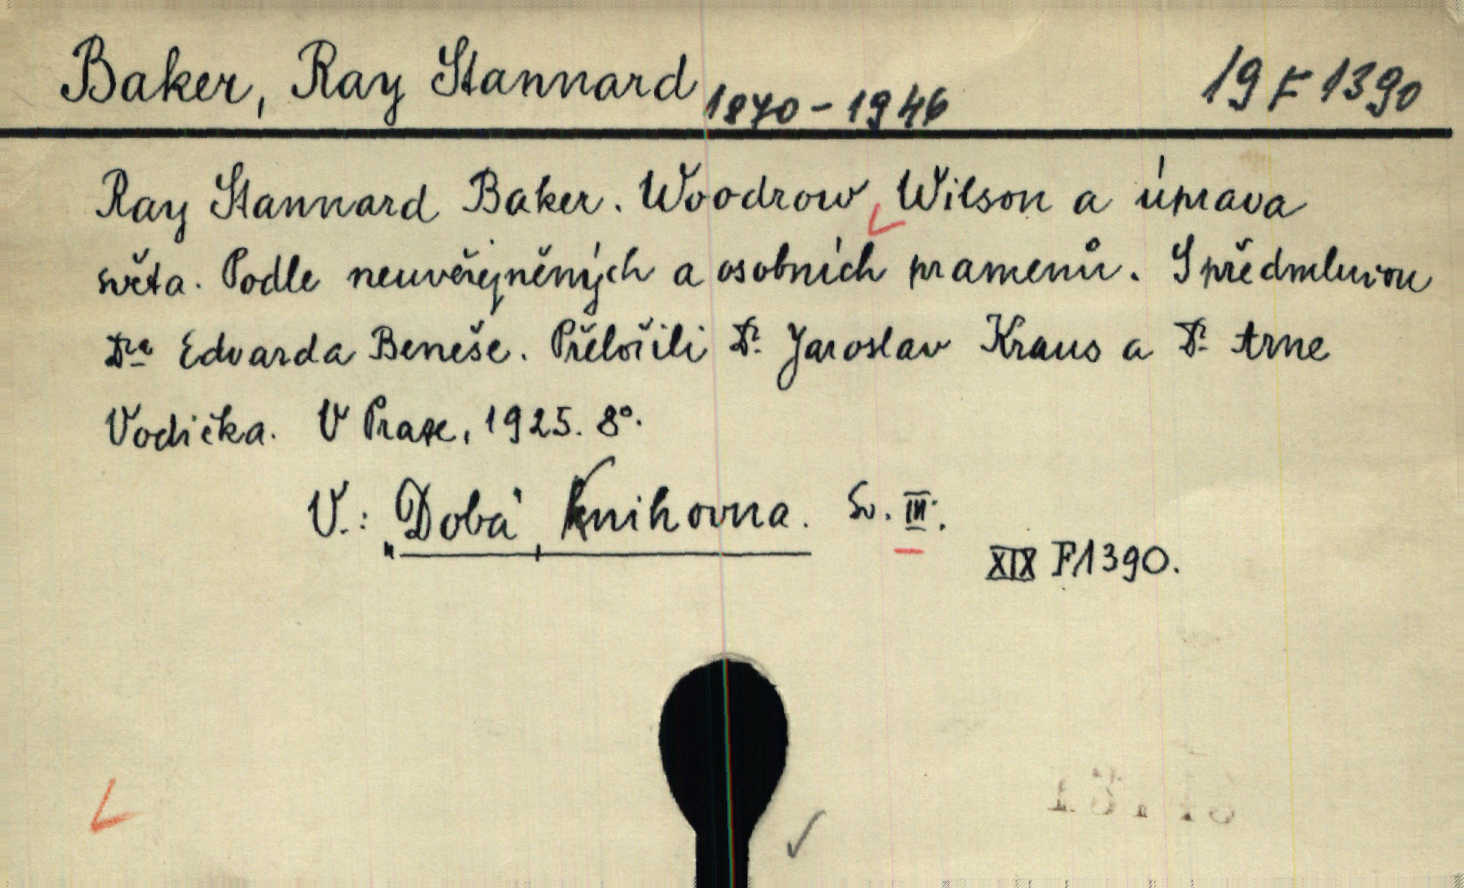 Baker, Ray Stannard 1870-1946 19 F 1390
Ray Stannard Baker. Woodrow Wilson a úprava
světa. Podle neuveřejněných a osobních pramenů. S předmluvou
Dra Edvarda Beneše. Přeložili Dr. Jaroslav Kraus a Dr. Arne
Vodička. V Praze, 1925. 8°.
V.: Dobá Knihovna. Sv. III.
XIX F1390.